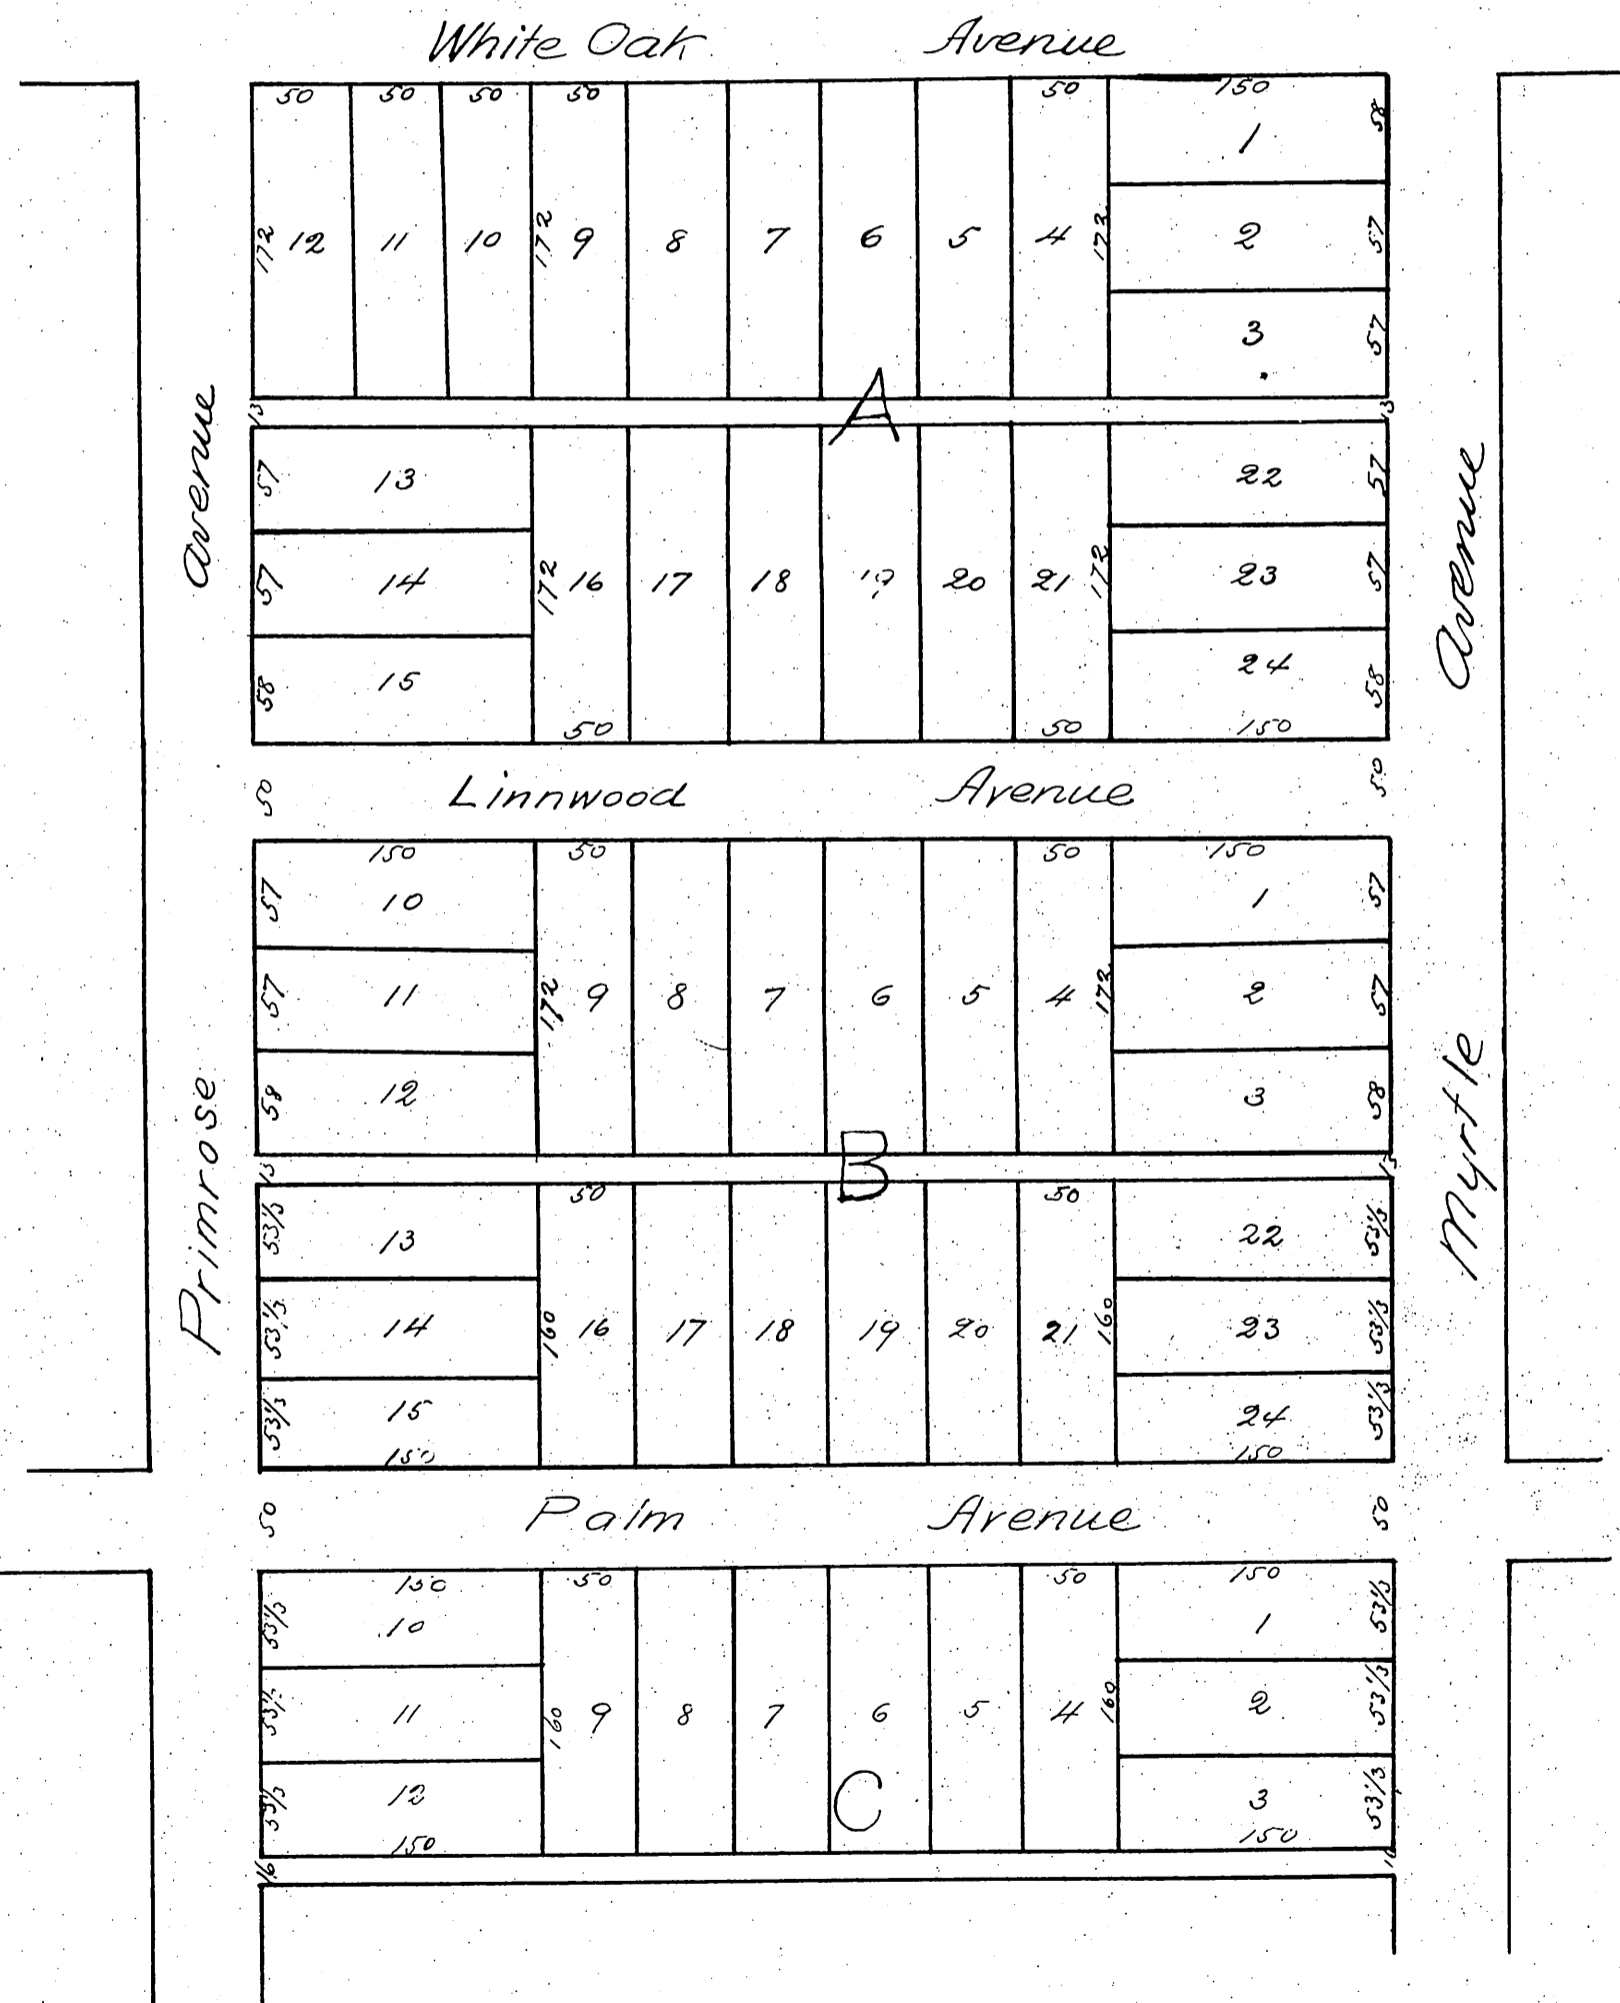 White Oak Avenue
50 50 50 50 50 150
1 58
172 12 11 10 172 9 8 7 6 5 4 172 2 57
3 57
13 A 13
57 13 22 57
57 14 172 16 17 18 19 20 21 172 23 57
58 15 24 58
50 50 150
50 Linnwood Avenue 50
150 50 50 150
57 10 1 57
57 11 172 9 8 7 6 5 4 172 2 57
58 12 3 58
13 B 13
50 50
53 1/3 13 22 53 1/3
53 1/3 14 160 16 17 18 19 20 21 160 23 53 1/3
53 1/3 15 24 53 1/3
150 150
50 Palm Avenue 50
150 50 50 150
53 1/3 10 1 53 1/3
53 1/3 11 160 9 8 7 6 5 4 160 2 53 1/3
53 1/3 12 C 3 53 1/3
150 150
16
Primrose Avenue
Myrtle Avenue